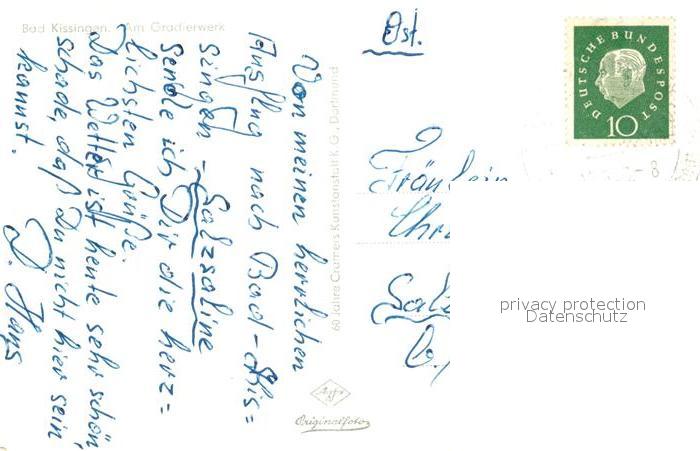 Bad Kissingen. Am Gradierwerk
Von meinen herrlichen
Ausflug nach Bad-Kis=
singen - Salzsaline
sende ich Dir die herz=
lichsten Grüße.
Das Wetter ist heute sehr schön,
schade, daß Du nicht hier sein
kannst.
D. Hans
60 Jahre Cramers Kunstanstalt K.G., Dortmund
Agfa
Originalfoto
Ost.
DEUTSCHE BUNDESPOST
10
8
Fräulein
Chr
Salz
privacy protection
Datenschutz